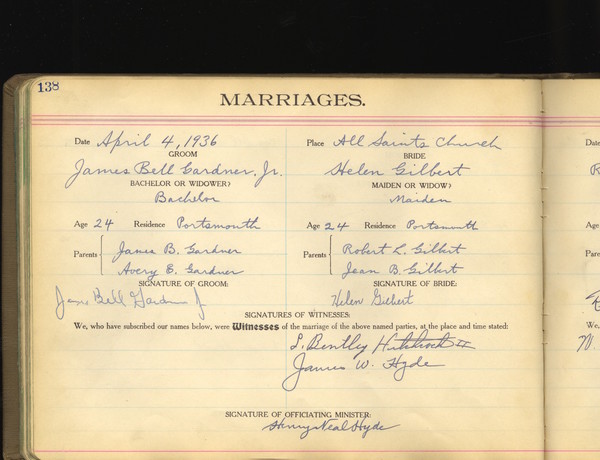 138
MARRIAGES.
Date April 4, 1936 Place All Saints Church
GROOM BRIDE
James Bell Gardner, Jr. Helen Gilbert
BACHELOR OR WIDOWER? MAIDEN OR WIDOW?
Bachelor Maiden
Age 24 Residence Portsmouth Age 24 Residence Portsmouth
Parents James B. Gardner Robert L. Gilbert
Avery E. Gardner Parents Jean B. Gilbert
SIGNATURE OF GROOM: SIGNATURE OF BRIDE:
James Bell Gardner Jr Helen Gilbert
SIGNATURES OF WITNESSES:
We, who have subscribed our names below, were Witnesses of the marriage of the above named parties, at the place and time stated:
L. Bentley II
James W. Hyde
SIGNATURE OF OFFICIATING MINISTER:
Henry Neal Hyde
Date
R
Age
Parents
We,
M.